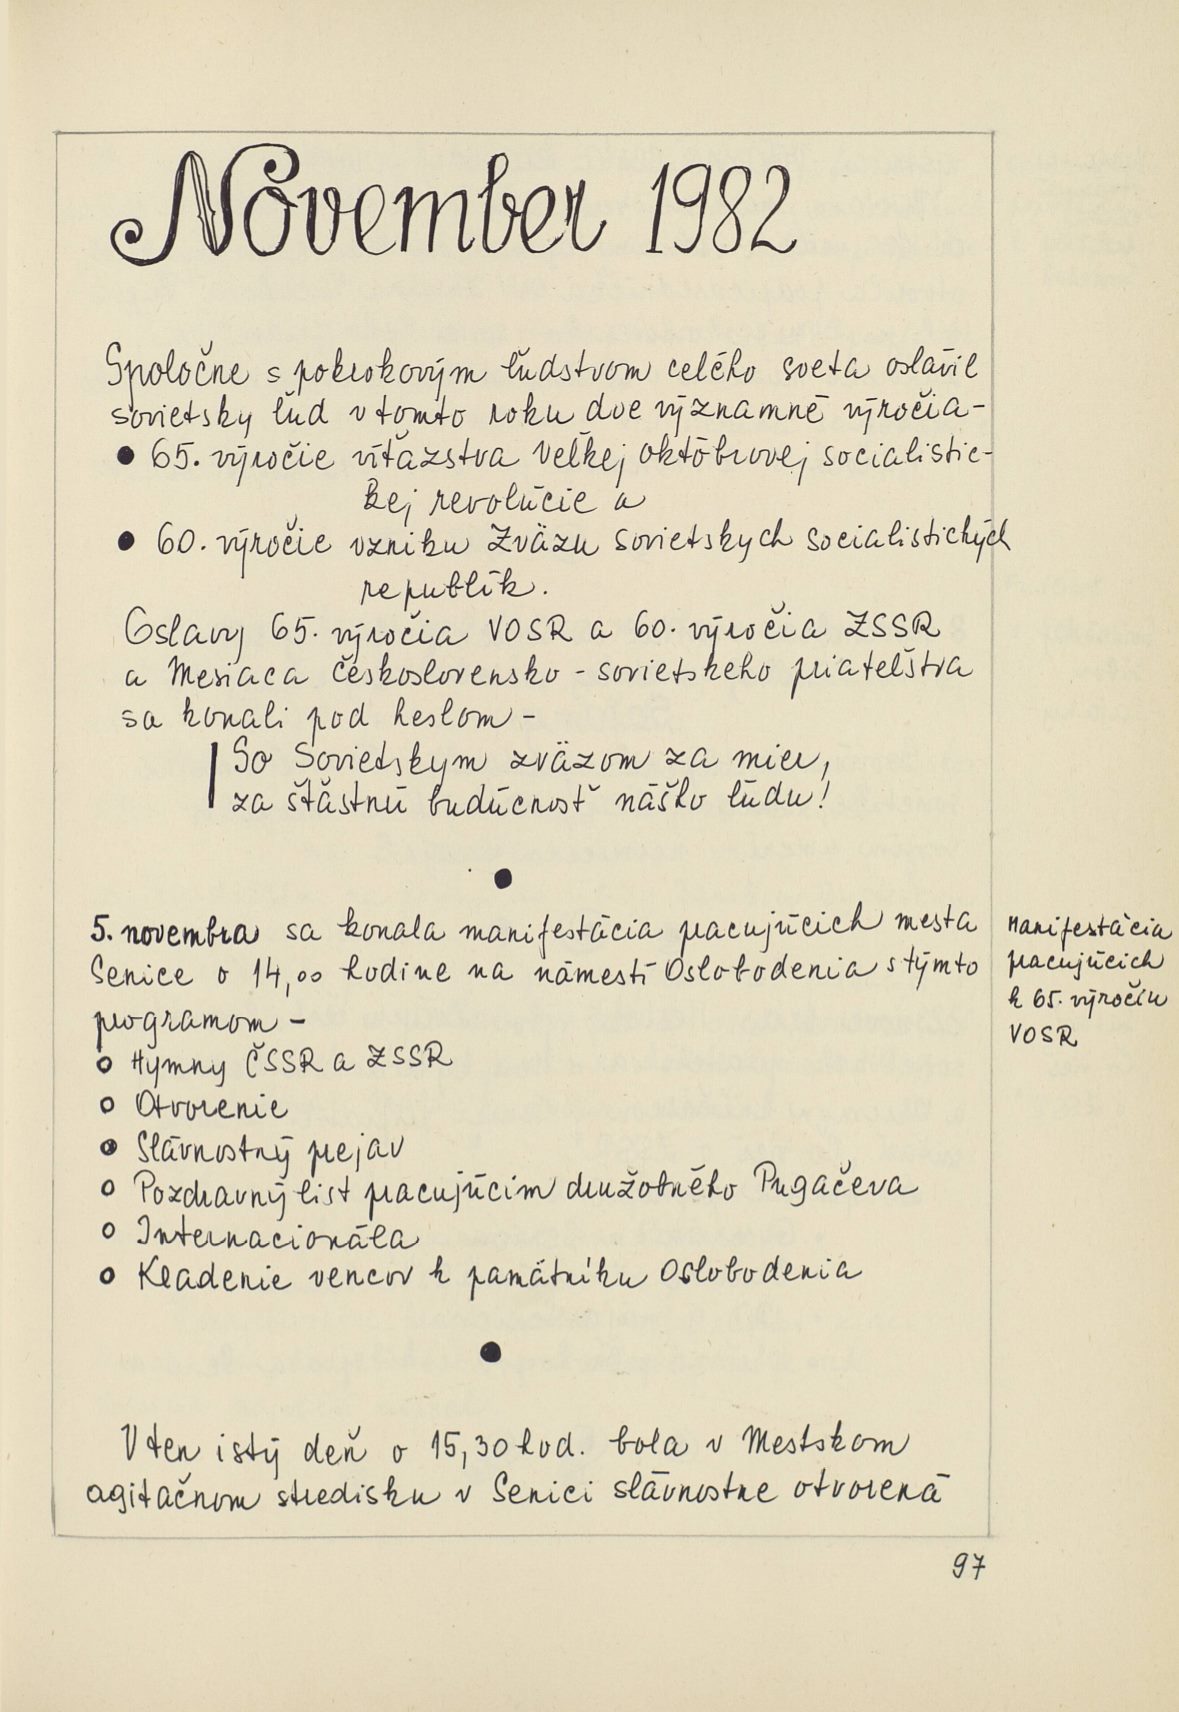 November 1982
Spoločne s pokrokovým ľudstvom celého sveta oslávil
sovietsky ľud v tomto roku dve významné výročia -
● 65. výročie víťazstva Veľkej októbrovej socialistic-
kej revolúcie a
● 60. výročie vzniku Zväzu sovietskych socialistických
republík.
Oslavy 65. výročia VOSR a 60. výročia ZSSR
a Mesiaca československo - sovietskeho priateľstva
sa konali pod heslom -
So Sovietskym zväzom za mier,
za šťastnú budúcnosť nášho ľudu!
●
5. novembra sa konala manifestácia pracujúcich mesta
Senice o 14,00 hodine na námestí Oslobodenia s týmto
programom -
o Hymny ČSSR a ZSSR
o Otvorenie
o Slávnostný prejav
o Pozdravný list pracujúcim družobného Pugačeva
o Internacionála
o Kladenie vencov k pamätníku Oslobodenia
●
V ten istý deň o 15,30 hod. bola v Mestskom
agitačnom stredisku v Senici slávnostne otvorená
Manifestácia
pracujúcich
k 65. výročiu
VOSR
97